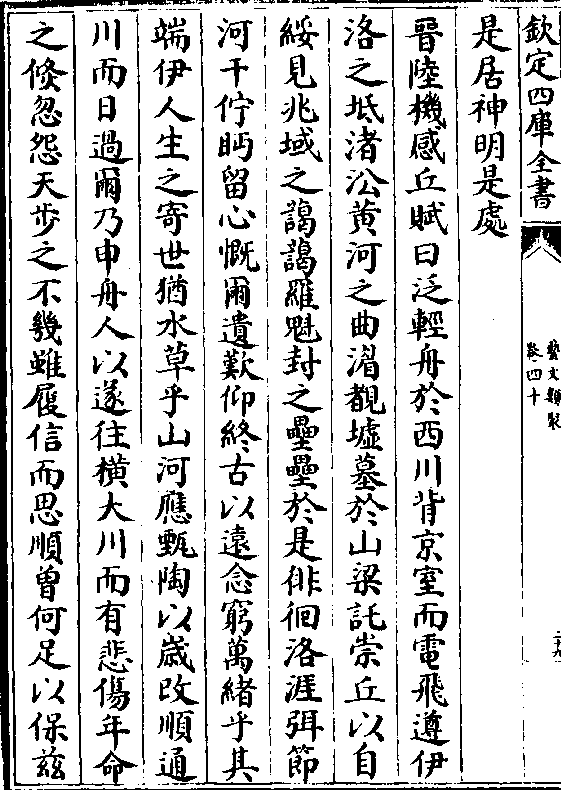 欽定四庫全書
藝文類聚
卷四十
是居神明是處
晉陸機感丘賦曰泛輕舟於西川背京室而電飛遵伊
洛之坻渚㳂黃河之曲湄覩墟墓於山梁託崇丘以自
綏見兆域之藹藹羅魁封之壘壘於是徘徊洛涯弭節
河干佇眄留心慨爾遺歎仰終古以遠念窮萬緒乎其
端伊人生之寄世猶水草乎山河應甄陶以歲改順通
川而日過爾乃申舟人以遂往橫大川而有悲傷年命
之倏忽怨天步之不幾雖履信而思順曾何足以保茲